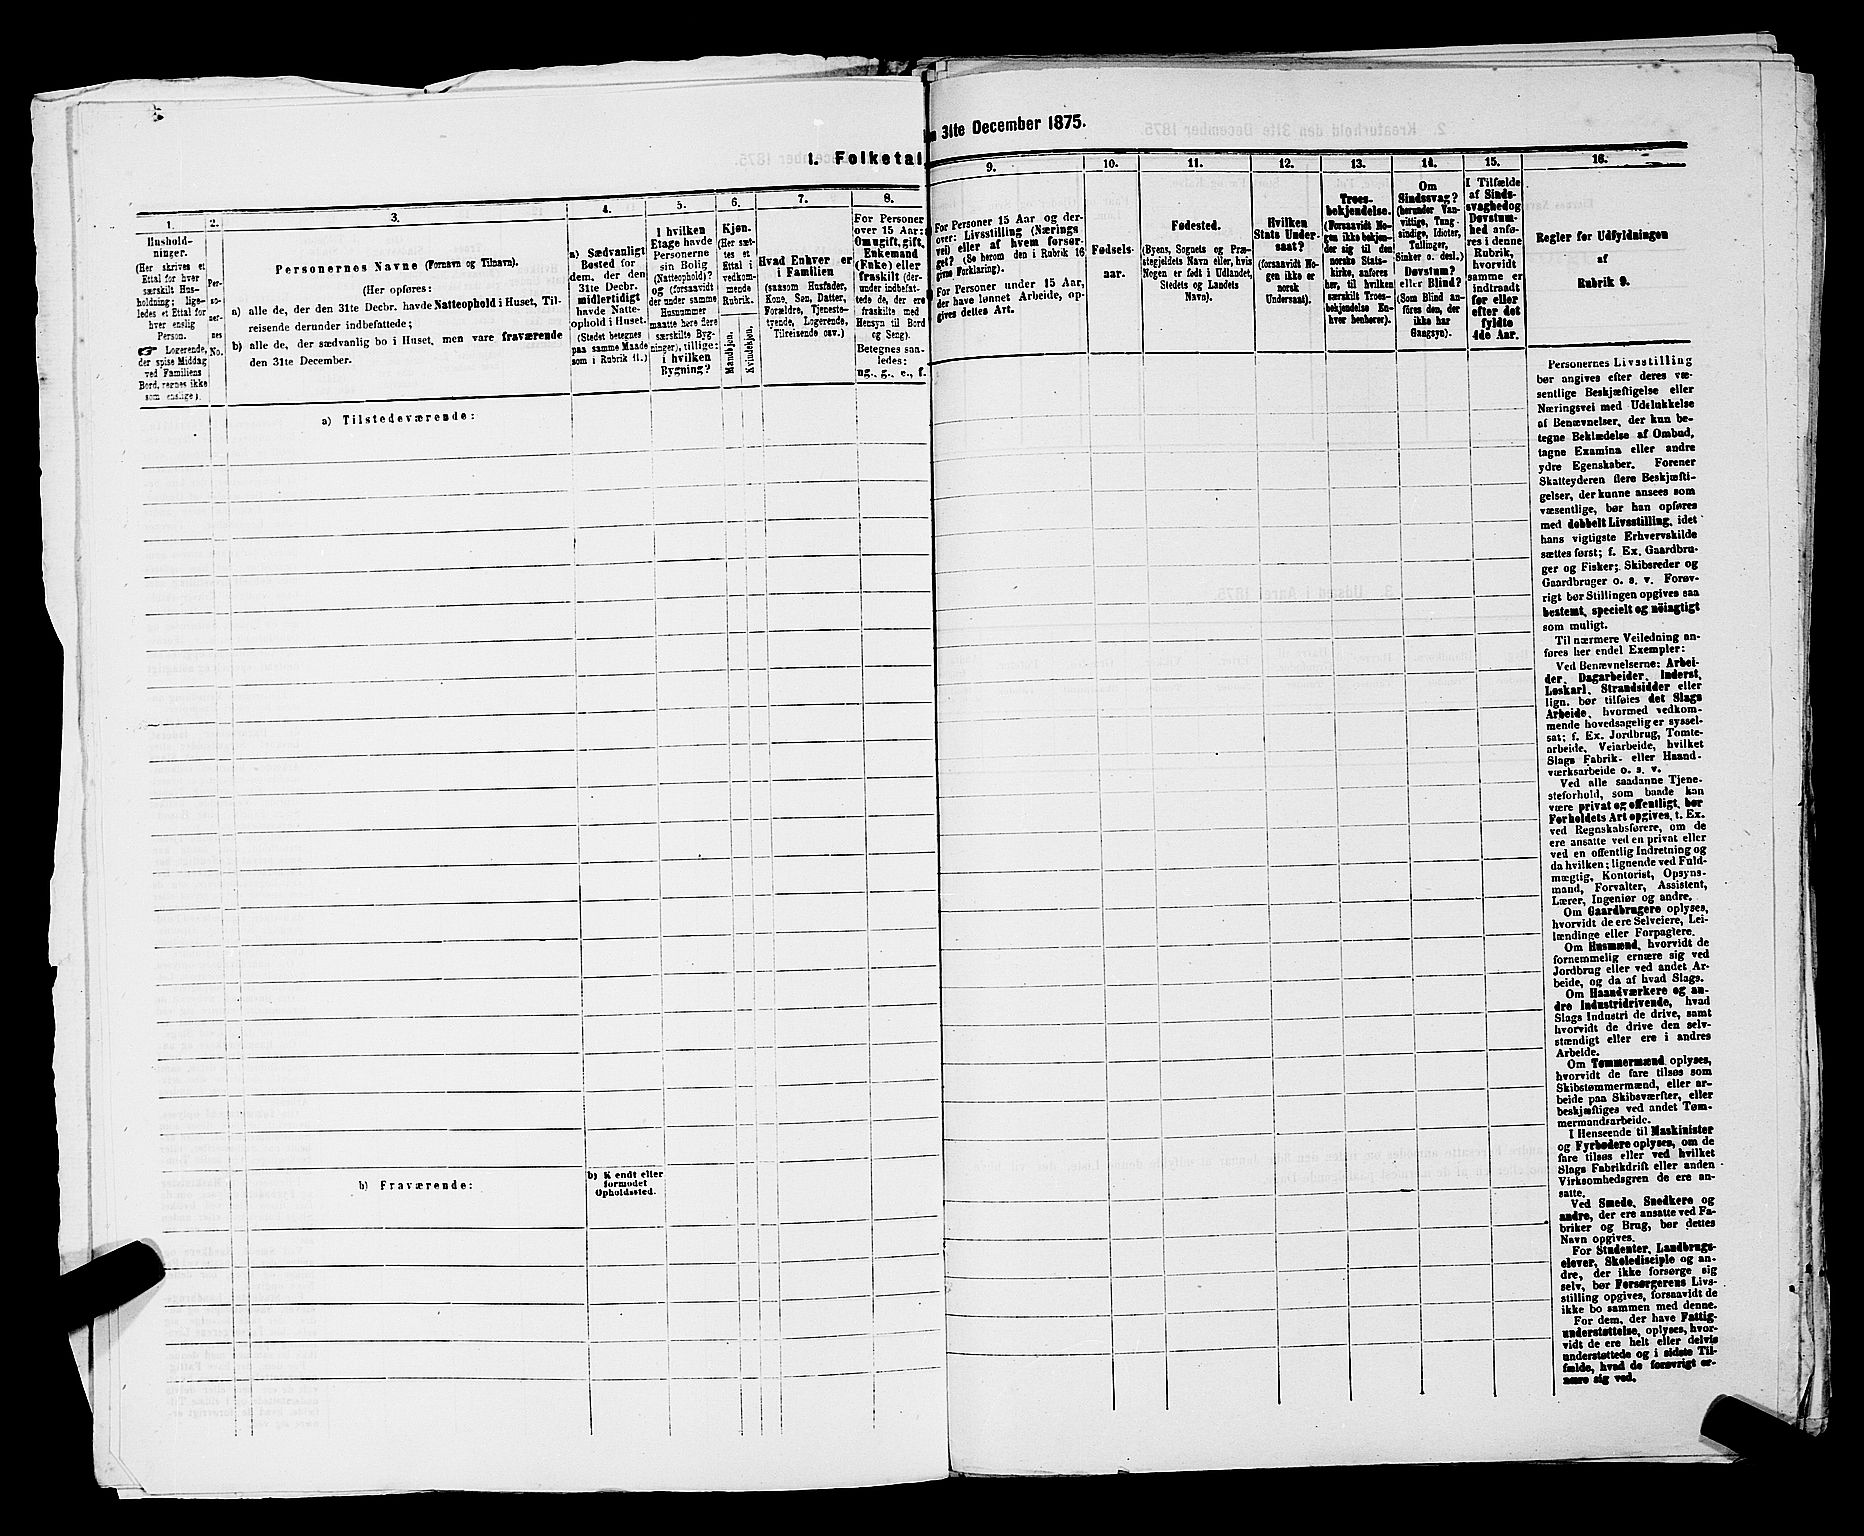 1. Folketal
31te December 1875.
1.
Hushold-
ninger.
(Her skrives et
Ettal for hver
særskilt Hus-
holdning; lige-
ledes et Ettal for
hver enslig
Person.
☞ Logerende,
der spise Middag
ved Familiens
Bord, regnes ikke
som enslige).
2.
Per-
so-
ner-
nes
No.
3.
Personernes Navne (Fornavn og Tilnavn).
(Her opføres:
a) alle de, der den 31te Decbr. havde Natteophold i Huset, Til-
reisende derunder indbefattede;
b) alle de, der sædvanlig bo i Huset, men vare fraværende
den 31te December.
4.
a) Sædvanligt
Bosted for
dem, der den
31te Decbr.
midlertidigt
havde Natte-
ophold i Huset.
(Stedet betegnes
paa samme Maade
som i Rubrik 11.)
5.
I hvilken
Etage havde
Personerne
sin Bolig
(Natteophold)?
og (forsaavidt
der under samme
Husnummer
maatte høre flere
særskilte Byg-
ninger), tillige:
i hvilken
Bygning?
6.
Kjøn.
(Her sæt-
tes et
Ettal i
vedkom-
mende
Rubrik.
Mandkjøn.
Kvindekjøn.
7.
Hvad Enhver er
i Familien
(saasom Husfader,
Kone, Søn, Datter,
Forældre, Tjeneste-
tyende, Logerende,
Tilreisende osv.)
8.
For Personer
over 15 Aar:
Om ugift, gift,
Enkemand
(Enke) eller
fraskilt (der-
under indbefat-
tede de, der ere
fraskilte med
Hensyn til Bord
og Seng).
Betegnes saa-
ledes:
ug., g., e., f.
9.
For Personer 15 Aar og der-
over: Livsstilling (Nærings
vei) eller af hvem forsør-
get? (Se herom den i Rubrik 16
givne Forklaring).
For Personer under 15 Aar,
der have lønnet Arbeide, op-
gives dettes Art.
10.
Fødsels-
aar.
11.
Fødested.
(Byens, Sognets og Præ-
stegjeldets Navn eller, hvis
Nogen er født i Udlandet,
Stedets og Landets
Navn).
12.
Hvilken
Stats Under-
saat?
(forsaavidt No-
gen ikke er
norsk
Undersaat).
13.
Troes-
bekjendelse.
(Forsaavidt No-
gen ikke bekjen-
der sig til den
norske Stats-
kirke, anføres
her, til hvilken
særskilt Troes-
bekjendelse En-
hver henhører).
14.
Om
Sindssvag?
(herunder Van-
vittige, Tung-
sindige, Idioter,
Tullinger,
Sinker o. desl.)
Døvstum?
eller Blind?
(Som Blind an-
føres den, der
ikke har
Gangsyn).
15.
I Tilfælde
af Sinds-
svaghed og
Døvstum-
hed anfø-
res i denne
Rubrik,
hvorvidt
samme er
indtraadt
før eller
efter det
fyldte
4de Aar.
16.
Regler for Udfyldningen
af
Rubrik 9.
Personernes Livsstilling
bør angives efter deres væ-
sentlige Beskjæftigelse eller
Næringsvei med Udelukkelse
af Benævnelser, der kun be-
tegne Beklædelse af Ombud,
tagne Examina eller andre
ydre Egenskaber. Forener
Skatteyderen flere Beskjæfti-
gelser, der kunne ansees som
væsentlige, bør han opføres
med dobbelt Livsstilling, idet
hans vigtigste Erhvervskilde
sættes først; f. Ex. Gaardbru-
ger og Fisker; Skibsreder og
Gaardbruger o. s. v. Forøv-
rigt bør Stillingen opgives saa
bestemt, specielt og nöiagtigt
som muligt.
Til nærmere Veiledning an-
føres her endel Exempler:
Ved Benævnelserne: Arbei-
der, Dagarbeider, Inderst,
Løskarl, Strandsidder eller
lign. bør tilføies det Slags
Arbeide, hvormed vedkom-
mende hovedsagelig er syssel-
sat; f. Ex. Jordbrug, Tomte-
arbeide, Veiarbeide, hvilket
Slags Fabrik- eller Haand-
værksarbeide o. s. v.
Ved alle saadanne Tjene-
steforhold, som baade kan
være privat og offentligt, bør
Forholdets Art opgives, t. Ex.
ved Regnskabsførere, om de
ere ansatte ved en privat eller
ved en offentlig Indretning og
da hvilken; lignende ved Fuld-
mægtig, Kontorist, Opsyns-
mand, Forvalter, Assistent,
Lærer, Ingeniør og andre.
Om Gaardbrugere oplyses,
hvorvidt de ere Selveiere, Lei-
lændinge eller Forpagtere.
Om Husmænd, hvorvidt de
fornemmelig ernære sig ved
Jordbrug eller ved andet Ar-
beide, og da af hvad Slags.
Om Haandværkere og an-
dre Industridrivende, hvad
Slags Industri de drive, samt
hvorvidt de drive den selv-
stændigt eller ere i andres
Arbeide.
Om Tømmermænd oplyses,
hvorvidt de fare tilsøs som
Skibstømmermænd, eller ar-
beide paa Skibsværfter, eller
beskjæftiges ved andet Tøm-
mermandsarbeide.
I Henseende til Maskinister
og Fyrbødere oplyses, om de
fare tilsøs eller ved hvilket
Slags Fabrikdrift eller anden
Virksomhedsgren de ere an-
satte.
Ved Smede, Snedkere og
andre, der ere ansatte ved Fa-
briker og Brug, bør dettes
Navn opgives.
For Studenter, Landbrugs-
elever, Skoledisciple og an-
dre, der ikke forsørge sig
selv, bør Forsørgerens Livs-
stilling opgives, forsaavidt de
ikke bo sammen med denne.
For dem, der have Fattig-
understøttelse, oplyses, hvor-
vidt de ere helt eller delvis
understøttede og i sidste Til-
fælde, hvad de forøvrigt er-
nære sig ved.
a) Tilstedeværende:
b) Fraværende:
b) Kjendt eller
formodet
Opholdssted.